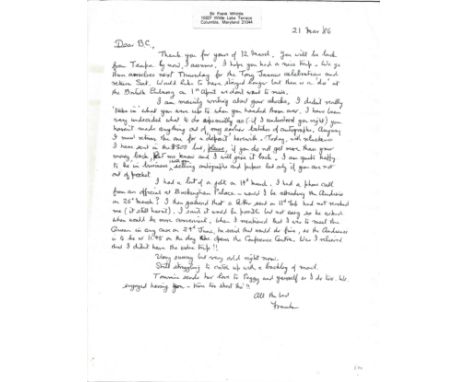 Sir Frank Whittle
10327 Wilde Lake Terrace
Columbia, Maryland 21044
21 Mar '86
Dear B.C.,
Thank you for yours of 12 March. You will be back
from Tampa by now, I assume. I hope you had a nice trip. We go
there ourselves next Thursday for the Tony Jannus celebrations and
return Sat. Would like to have stayed longer but there is a 'do' at
the British Embassy on 1st April we don't want to miss.
I am mainly writing about your checks, I didn't really
'take in' what you were up to when you handed them over. I have been
very undecided what to do especially as (if I understood you right) you
haven't made anything out of my earlier batches of autographs. Anyway
I must return the one for a deposit herewith. Today, with reluctance
I have sent in the $500 but, please, if you do not get more than your
money back, let me know and I will give it back. I am quite happy
to be in business with you selling autographs and papers but only if you are not
out of pocket.
I had a bit of a jolt on 19th March. I had a phone call
from an official at Buckingham Palace - would I be attending the Audience
on 25th March? I then gathered that a letter sent on 11th Feb had not reached
me (it still hasn't). I said it would be possible but not easy so he asked
when would be more convenient. When I mentioned that I was to meet the
Queen in any case on 24th June he said that would do fine, so the Audience
is to be at 10.45 on the day she opens the Conference Centre. Was I relieved
that I didn't have the extra trip!!
Very sunny but very cold right now.
Still struggling to catch up with a backlog of mail.
Tommie sends her love to Peggy and yourself as I do too. We
enjoyed having you - time too short tho'!!
All the best
Frank